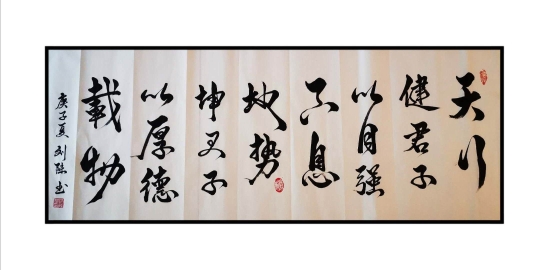 天行
健君子
以自强
不息
地勢
坤君子
以厚德
載物
庚子夏 刘 书